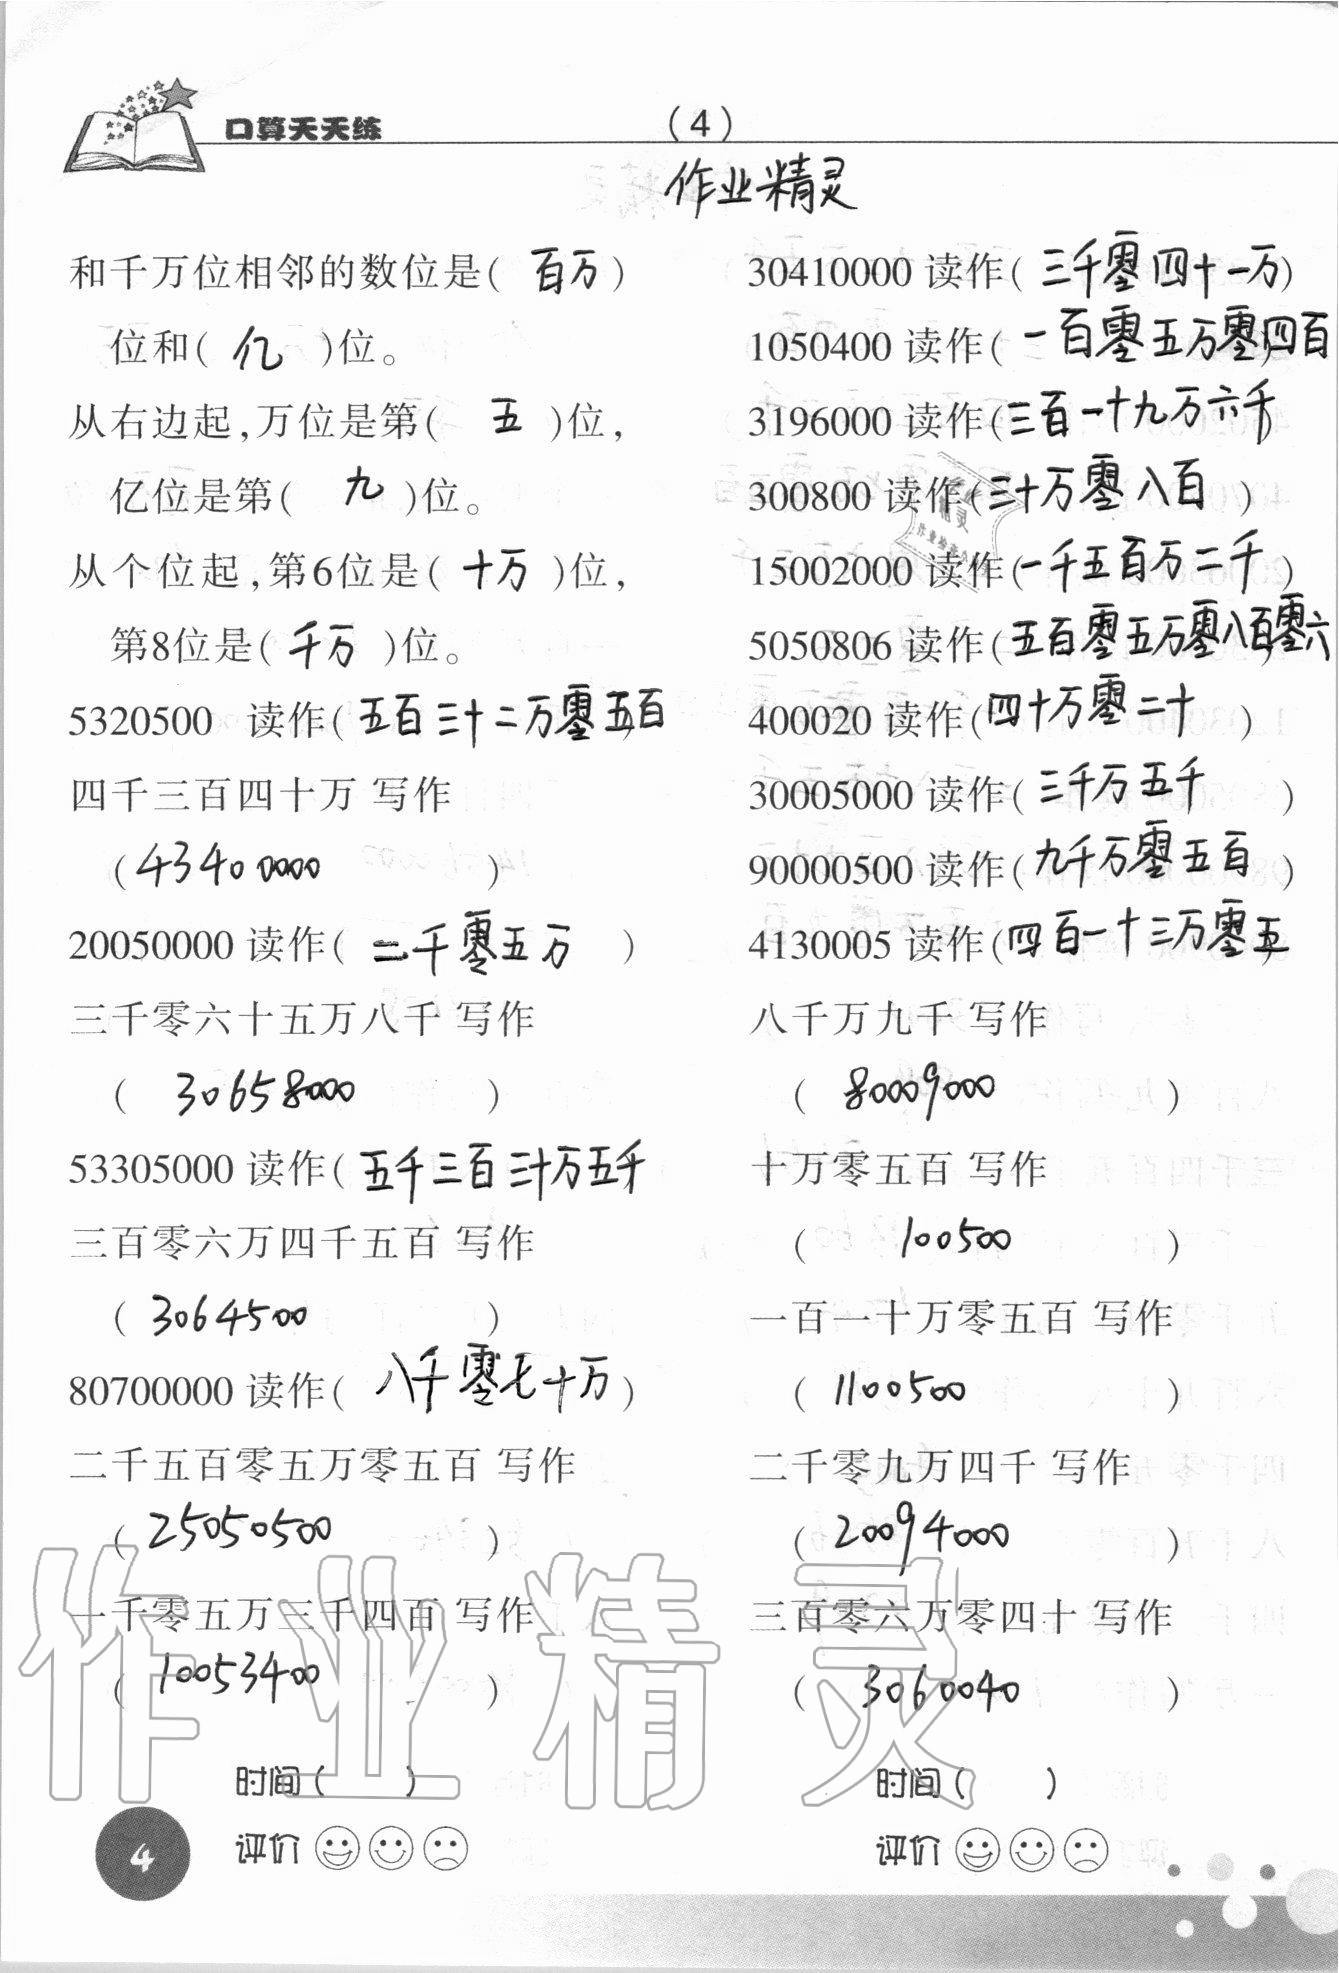 口算天天练
(4)
作业精灵
和千万位相邻的数位是( 百万 )
位和( 亿 )位。
从右边起,万位是第( 五 )位,
亿位是第( 九 )位。
从个位起,第6位是( 十万 )位,
第8位是( 千万 )位。
5320500 读作( 五百三十二万零五百 )
四千三百四十万 写作
( 43400000 )
20050000 读作( 二千零五万 )
三千零六十五万八千 写作
( 30658000 )
53305000 读作( 五千三百三十万五千
三百零六万四千五百 写作
( 3064500 )
80700000 读作( 八千零七十万 )
二千五百零五万零五百 写作
( 25050500 )
一千零五万三千四百 写作
( 10053400 )
时间( )
评价
30410000 读作( 三千零四十一万 )
1050400 读作( 一百零五万零四百 )
3196000 读作( 三百一十九万六千 )
300800 读作( 三十万零八百 )
15002000 读作( 一千五百万二千 )
5050806 读作( 五百零五万零八百零六 )
400020 读作( 四十万零二十 )
30005000 读作( 三千万五千 )
90000500 读作( 九千万零五百 )
4130005 读作( 四百一十三万零五 )
八千万九千 写作
( 80009000 )
十万零五百 写作
( 100500 )
一百一十万零五百 写作
( 1100500 )
二千零九万四千 写作
( 20094000 )
三百零六万零四十 写作
( 3060040 )
时间( )
评价
4
作业精灵